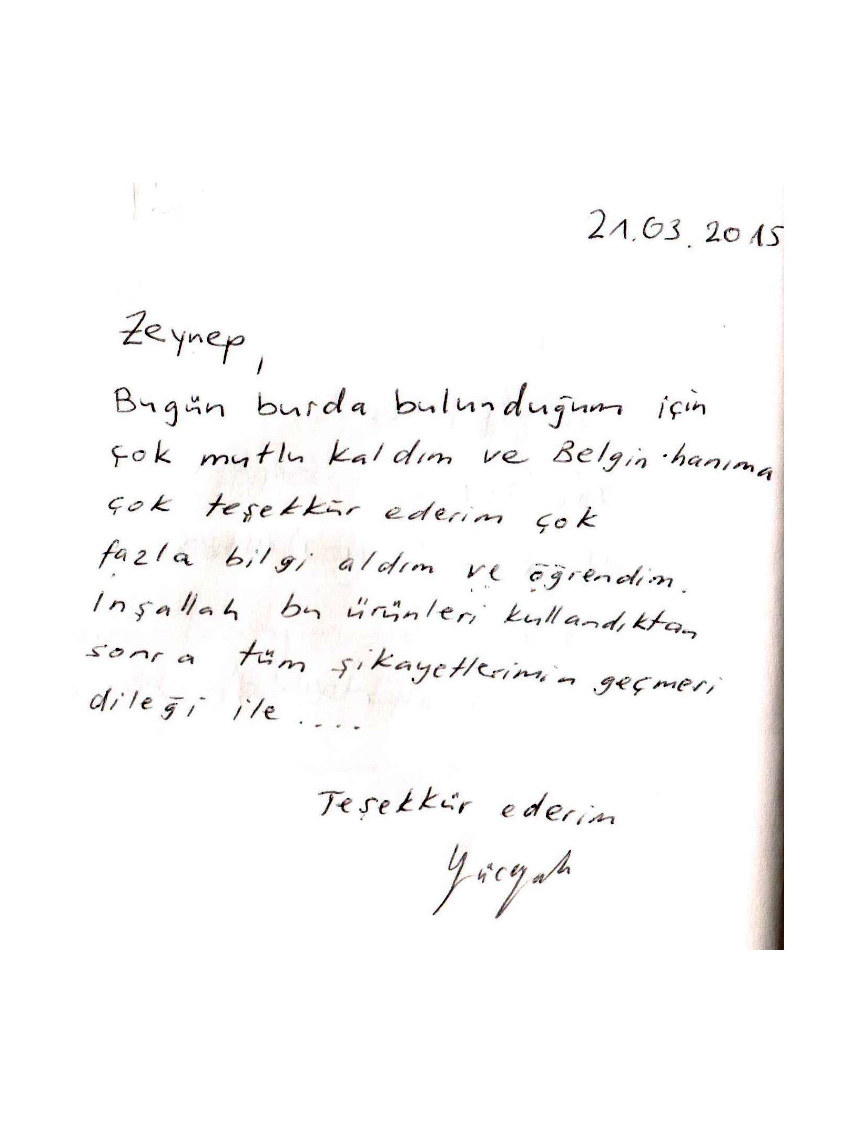 21.03.2015
Zeynep,
Bugün burda bulunduğum için
çok mutlu kaldım ve Belgin hanıma
çok teşekkür ederim çok
fazla bilgi aldım ve öğrendim.
İnşallah bu ürünleri kullandıktan
sonra tüm şikayetlerimin geçmeri
dileği ile ....
Teşekkür ederim